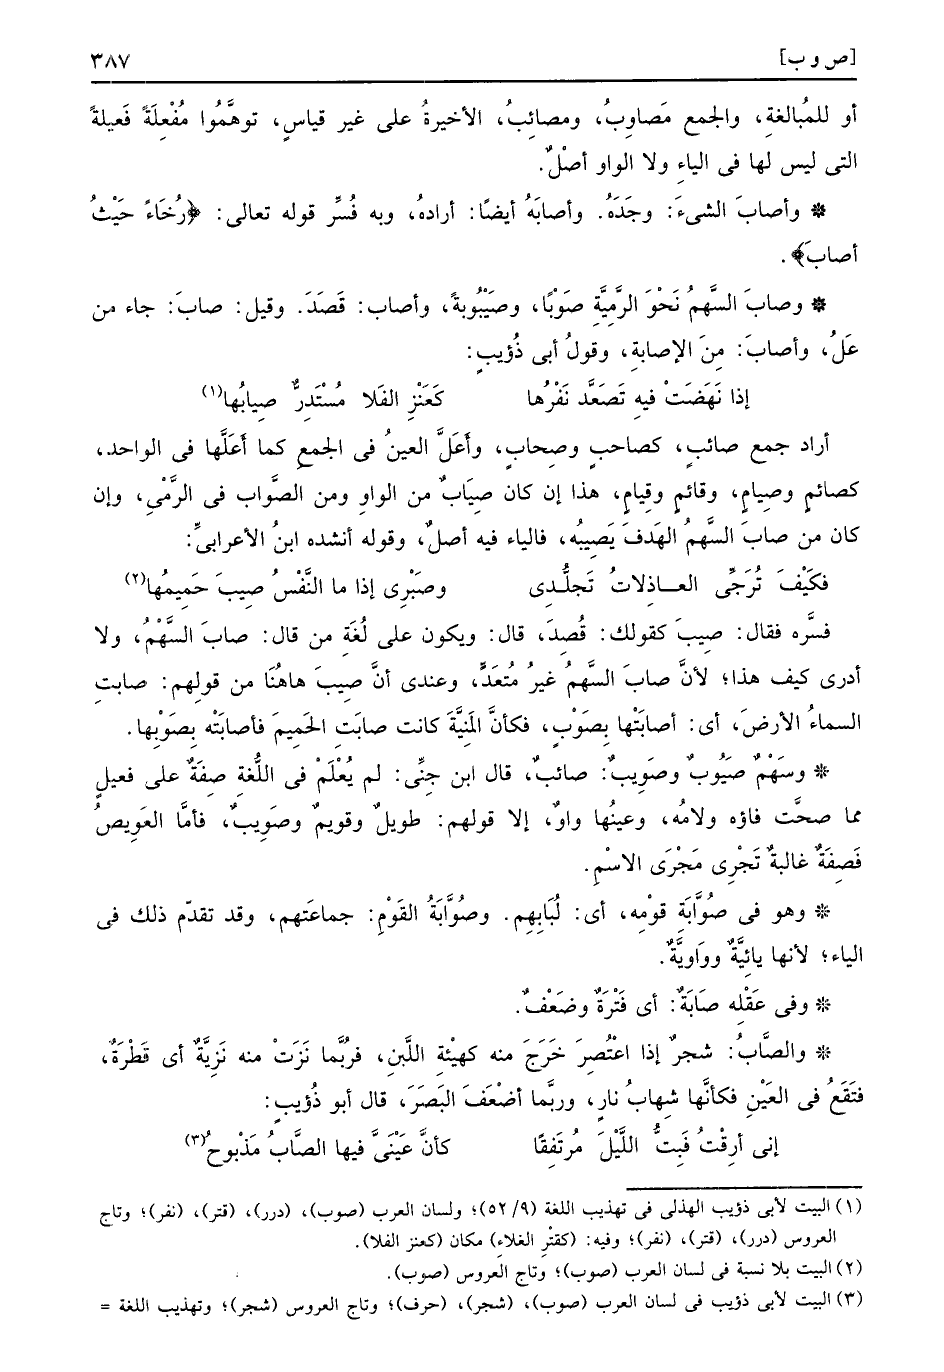 [ص و ب] ٣٨٧
أو للمُبالغةِ، والجمع مَصاوِبُ، ومصائبُ، الأخيرةُ على غير قياسٍ، توهَّمُوا مُفْعِلَةً فَعيلةً
التى ليس لها فى الياءِ ولا الواو أصْلٌ.
* وأصابَ الشىءَ: وجَدَهُ. وأصابَهُ أيضًا: أرادهُ، وبه فُسِّر قوله تعالى: ﴿رُخَاءً حَيْثُ
أصابَ﴾.
* وصابَ السَّهمُ نَحْوَ الرَّمِيَّةِ صَوْبًا، وصَيْبُوبةً، وأصاب: قَصَدَ. وقيل: صابَ: جاء من
عَلُ، وأصابَ: مِنَ الإصابةِ، وقولُ أبى ذُؤيبٍ:
إذا نَهَضَتْ فيه تَصَعَّد نَفْرُها كَعَنْزِ الفَلا مُسْتَدِرٌّ صيابُها(١)
أراد جمع صائبٍ، كصاحبٍ وصحابٍ، وأعَلَّ العينُ فى الجمعِ كما أَعَلَّها فى الواحد،
كصائمٍ وصيامٍ، وقائمٍ وقيامٍ، هذا إن كان صيَابٌ من الواوِ ومن الصَّواب فى الرَّمْىِ، وإن
كان من صابَ السَّهمُ الهَدفَ يَصِيبُه، فالياء فيه أصلٌ، وقوله أنشده ابنُ الأعرابىِّ:
فكَيْفَ تُرَجِّى العـاذلاتُ تَجلُّـدِى وصَبْرِى إذا ما النَّفْسُ صِيبَ حَمِيمُها(٢)
فسَّره فقال: صِيبَ كقولك: قُصِدَ، قال: ويكون على لُغَةِ من قال: صابَ السَّهْمُ، ولا
أدرى كيف هذا؛ لأنَّ صابَ السهمُ غيرُ مُتَعَدٍّ، وعندى أنَّ صِيبَ هاهُنَا من قولهم: صابتِ
السماءُ الأرضَ، أى: أصابَتْها بِصَوْبٍ، فكأنَّ المَنِيَّةَ كانت صابَتِ الحَميمَ فأصابَتْه بِصَوْبِها.
* وسَهْمٌ صَيُوبٌ وصَوِيبٌ: صائبٌ، قال ابن جنِّى: لم يُعْلَمْ فى اللُّغةِ صِفَةٌ على فعيلٍ
مما صحَّت فاؤه ولامُه، وعينُها واوٌ، إلا قولهم: طويلٌ وقويمٌ وصَوِيبٌ، فأمَّا العَوِيصُ
فَصِفَةٌ غالبةٌ تَجْرِى مَجْرَى الاسْمِ.
* وهو فى صُوَّابَةِ قوْمِه، أى: لُبَابِهِم. وصُوَّابَةُ القَوْمِ: جماعَتهم، وقد تقدّم ذلك فى
الياءِ؛ لأنها يائيَّةٌ وواوِيَّةٌ.
* وفى عَقْلِه صَابَةٌ: أى فَتْرَةٌ وضَعْفٌ.
* والصَّابُ: شجرٌ إذا اعْتُصِرَ خَرَجَ منه كهيْئةِ اللَّبنِ، فربُّما نَزَتْ منه نَزِيَّةٌ أى قَطْرَةٌ،
فتَقَعُ فى العَيْنِ فكأنَّها شهابُ نارٍ، وربَّما أضْعَفَ البَصَرَ، قال أبو ذُؤيبٍ:
إنى أرِقْتُ فَبِتُّ اللَّيْلَ مُرتَفِقًا كأنَّ عَيْنَىَّ فيها الصَّابُ مَذْبوحُ(٣)
(١) البيت لأبى ذؤيب الهذلى فى تهذيب اللغة (٥٢/٩)؛ ولسان العرب (صوب)، (درر)، (قتر)، (نفر)؛ وتاج
العروس (درر)، (قتر)، (نفر)؛ وفيه: (كقتْرِ الغلاء) مكان (كعنز الفلا).
(٢) البيت بلا نسبة فى لسان العرب (صوب)؛ وتاج العروس (صوب).
(٣) البيت لأبى ذؤيب فى لسان العرب (صوب)، (شجر)، (حرف)؛ وتاج العروس (شجر)؛ وتهذيب اللغة =